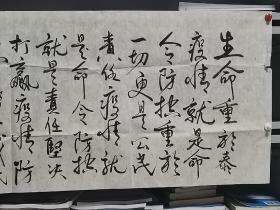 生命重於泰
疫情就是命
令防控重於
一切更是公民
责任疫情就
是命令防控
就是责任坚决
打赢疫情防